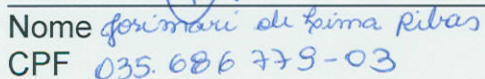 Nome Josimari de Lima Ribas
CPF 035.686 779-03